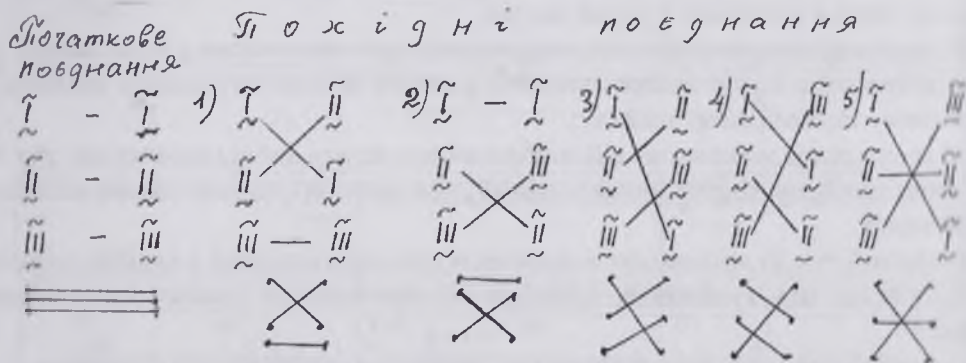 Початкове Похідні поєднання
поєднання
I - I 1) I II 2) I - I 3) I II 4) I III 5) I III
II - II II I II III II III II I II II
III - III III - III III II III I III II III I